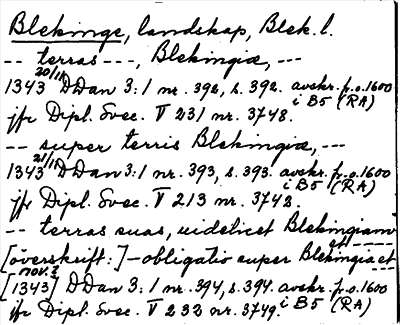 Blekinge, landskap, Blek. l.
-- terras ---, Blekingiæ, ---
1343 20/11 DDan 3:1 nr. 392, s. 392. avskr. f.o. 1600 i B5 (RA)
jfr Dipl. Svec. V 231 nr. 3748.
-- super terris Blekingiæ, ---
1343 21/11 DDan 3:1 nr. 393, s. 393. avskr. f.o. 1600 i B5 (RA)
jfr Dipl. Svec. V 213 nr. 3748.
-- terras suas, uidelicet Blekingiam et ----
[överskrift:] - obligatio super Blekingia et ---
[1343] nov.? DDan 3:1 nr. 394, s. 394. avskr. f.o. 1600 i B5 (RA)
jfr Dipl. Svec. V 232 nr. 3749.